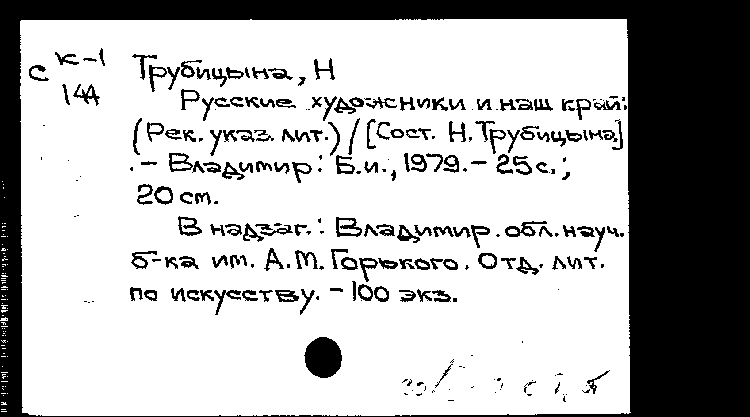 С к-1
144
Трубицына, Н
Русские художники и наш край:
(Рек. указ. лит.) / [Сост. Н. Трубицына.]
. – Владимир: Б.и., 1979. – 25 с.;
20 см.
В надзаг.: Владимир. обл. науч.
б-ка им. А.М. Горького. Отд. лит.
по искусству. – 100 экз.